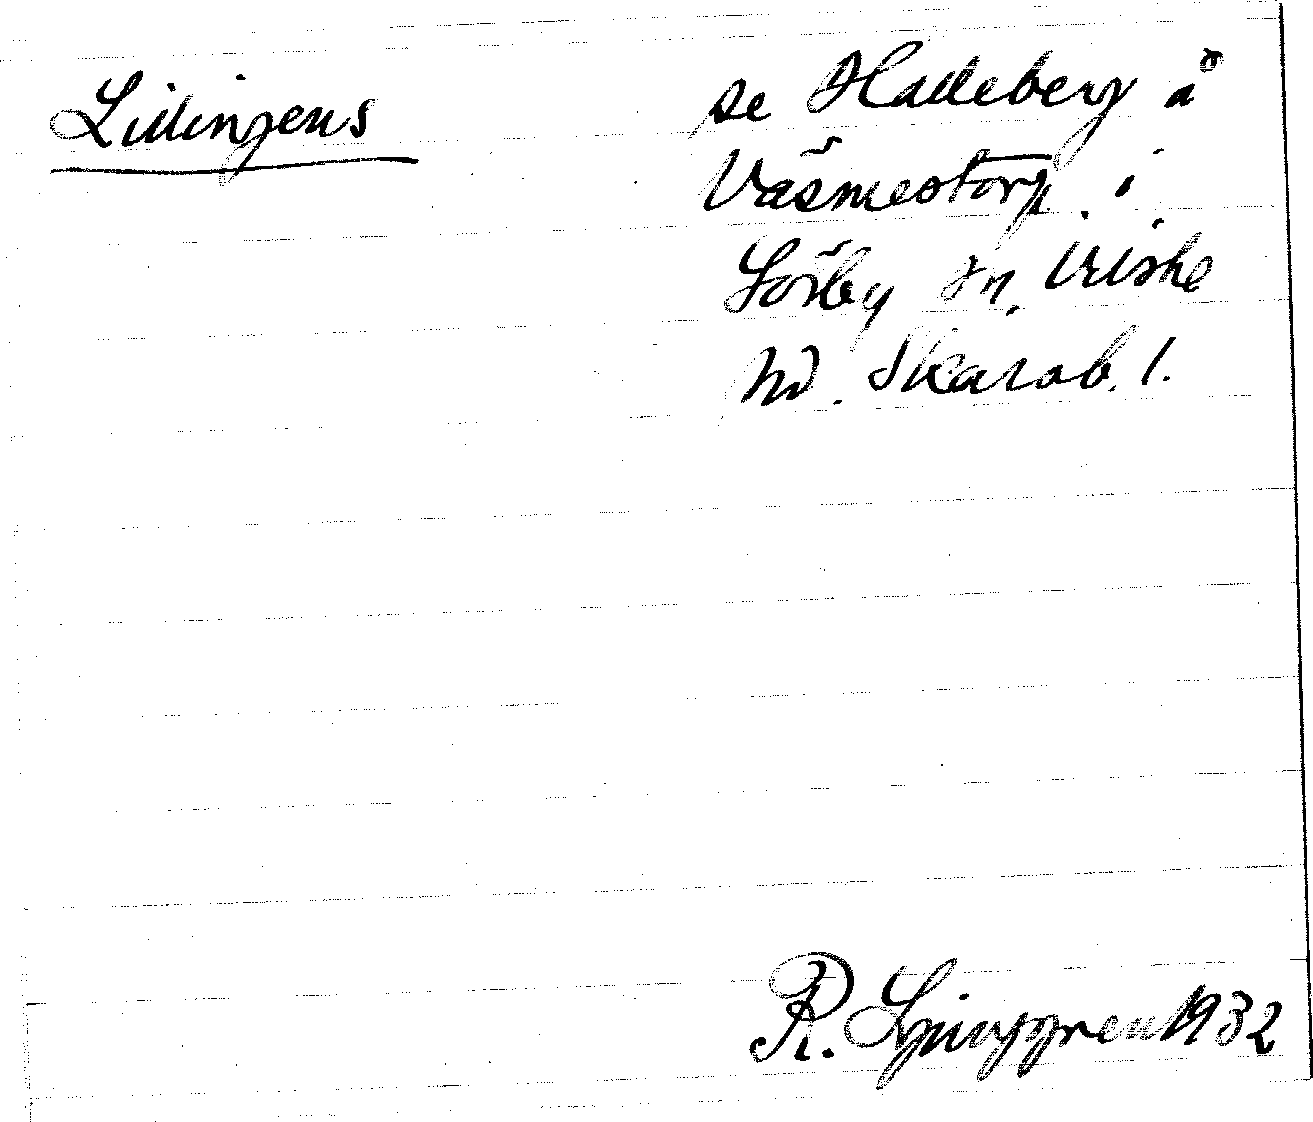 Lidingens
se Halleberg å
Väsmestorp. i
Sörby sn. Vilske
hd. Skarab. l.
R. Ljunggren 1932